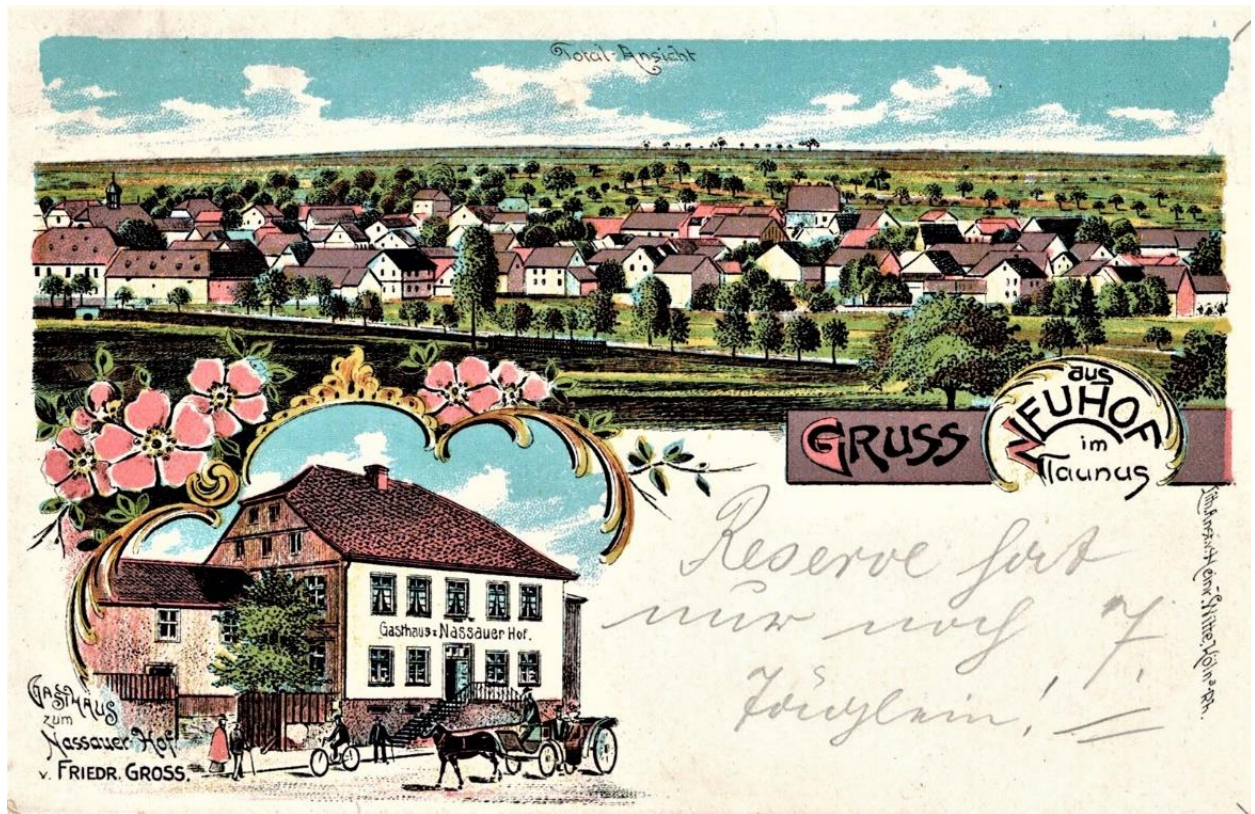 Total-Ansicht
GRUSS
aus
NEUHOF
im
Taunus
Gasthaus z. Nassauer Hof.
GASTHAUS
zum
Nassauer Hof
v. FRIEDR. GROSS.
Reserve hat
nur noch 7
Lith. Anst. v. Heinr. Witte, Köln a. Rh.